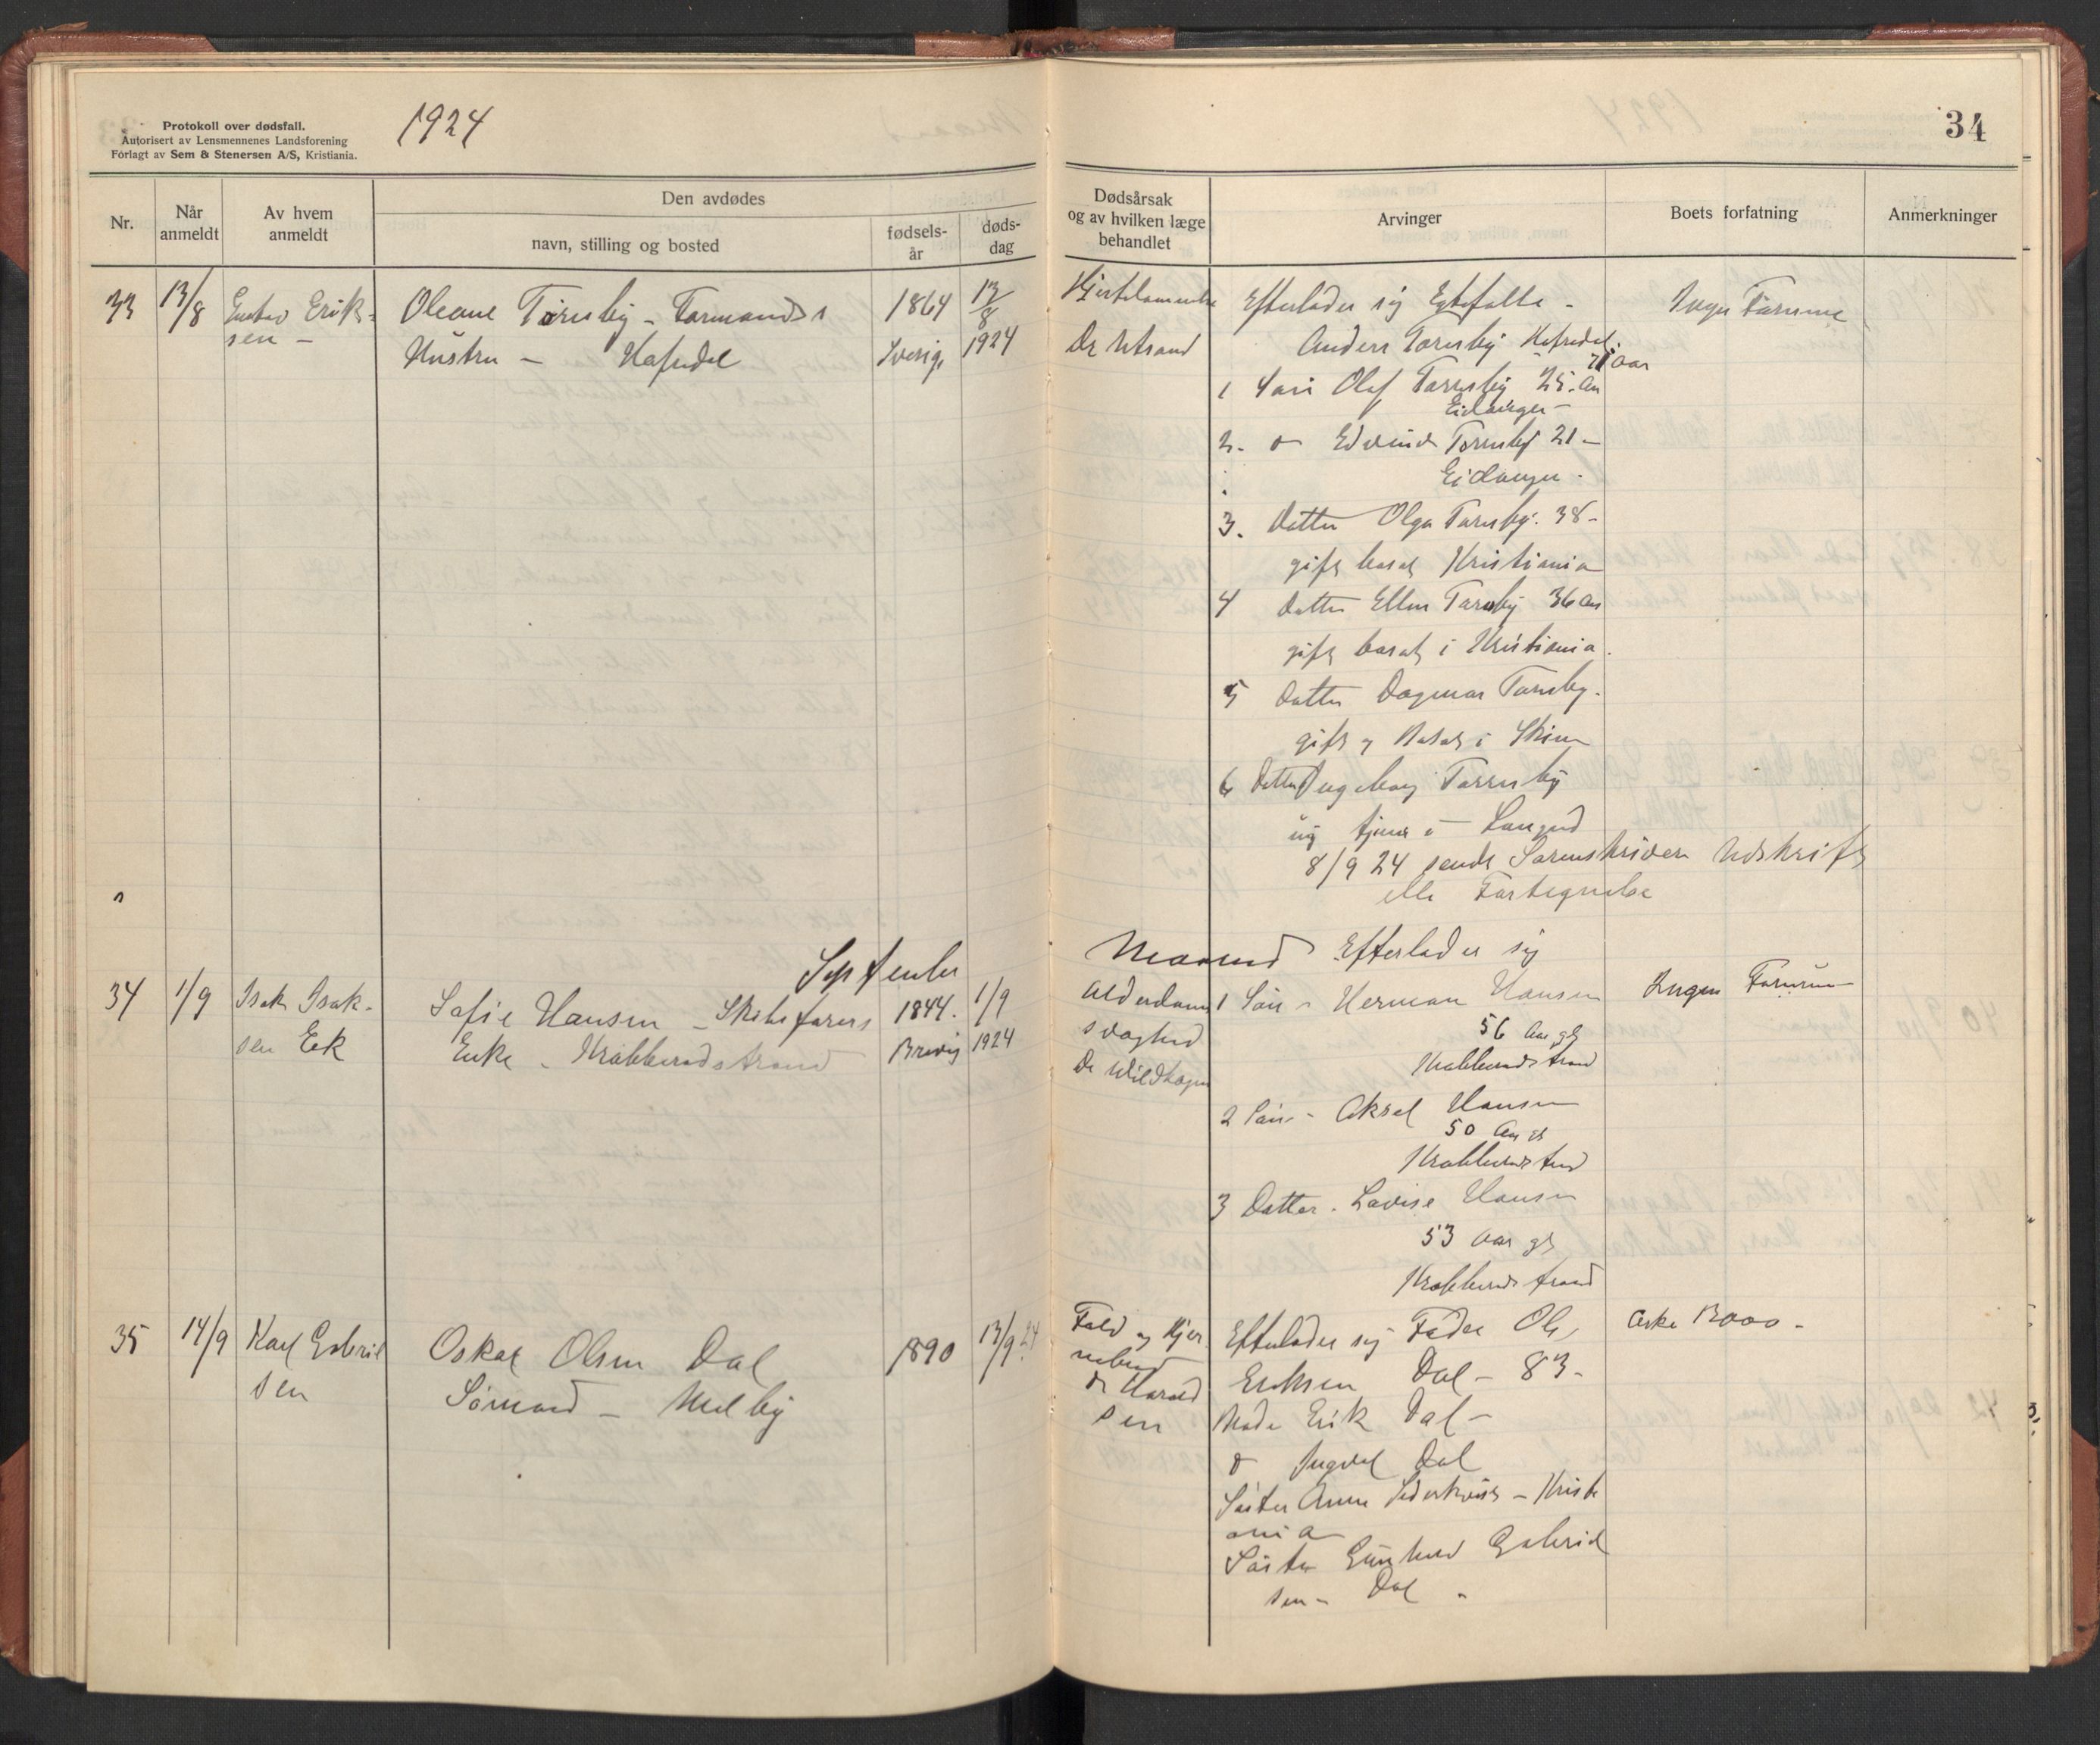 Protokoll over dødsfall.
Autorisert av Lensmennenes Landsforening
Forlagt av Sem & Stenersen A/S, Kristiania.
1924
34
Nr.
Når anmeldt
Av hvem anmeldt
Den avdødes
navn, stilling og bosted
fødsels-år
døds-dag
Dødsårsak
og av hvilken læge
behandlet
Arvinger
Boets forfatning
Anmerkninger
33 13/8 Gustav Erik-
sen -
Oleane Törnsby - Formands
Hustru - Hafredal
1864
Sverig
13/8
1924
Hjertelammelse
Dr
Efterlader sig Egtefælle -
Anders Tornsby Hafredal.
71 aar
1 Søn Olaf Tornsby 25 -
Eidanger -
2. o Edvind Tornsby 21 -
Eidanger -
3. Datter Olga Tornsby. 38 -
gift bosat Kristiania
4 Datter Ellen Tornsby 36 aar
gift bosat i Kristiania.
5 Datter Dagmar Tornsby -
gift og Bosat i Skien
6 Datter Ingeborg Tornsby
ug tjener i Langesund
8/9 24 sendt Sorenskriveren Udskrift
elle Fortegnelse
Ingen Formue
September Maaned
34 1/9 Isak Isak-
sen Eek
Sofie Hansen - Skibsførers
Enke - Krabberødstrand
1844.
Brevig
1/9
1924
Alderdoms
svaghed
Dr Wildhagen
Efterlader sig
1 Søn - Herman Hansen
56 Aar gl
Krabberødstrand
2 Søn - Aksel Hansen
50 Aar gl
Krabberødstrand
3 Datter - Lovise Hansen
53 Aar gl
Krabberødstrand
Ingen Formue
35 14/9 Karl Gabriel
sen
Oskar Olsen Dal
Sömand - Melby
1890
13/9 24
Fald og Hjer
nebrud
Dr Harald
sen
Efterlader sig Fader Ole
Eriksen Dal - 83 -
Broder Erik Dal -
o Ingvel Dal
Söster Anna - Kristi
ania
Söster Gunhild Gabriel
sen - Dal -